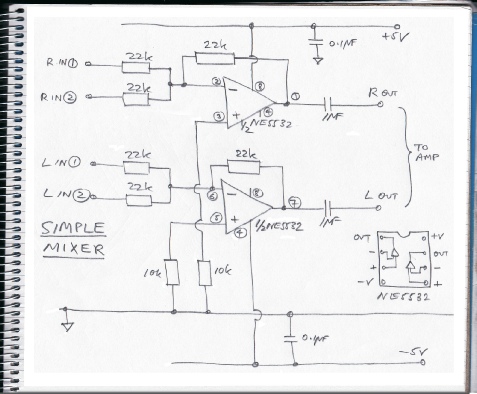 +5V
0.1µF
22k
R IN①
22k
R IN②
22k
②
③
⑧
④
①
−
+
½ NE5532
1µF
R OUT
L IN①
22k
L IN②
22k
22k
⑥
⑤
⑧
④
⑦
−
+
½NE5532
1µF
L OUT
TO
AMP
SIMPLE
MIXER
10k
10k
OUT
−
+
−V
+V
OUT
−
+
NE5532
0.1µF
−5V